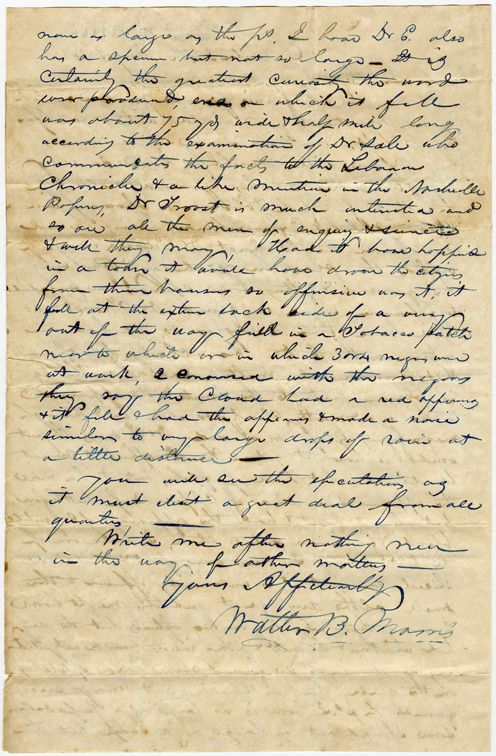 none as large as the ps. I hear Dr E. also
has a specm but not so large — It is
Certainly the greatest curiost the word
ever produced, area on which it fell
was about 75 yds wide & half mile long
according to the examination of Dr Sale who
communicates the facts to the Lebanon
Chronicle & a like mention in the Nashville
Papers, Dr Troost is much interested and
so are all the men of enquiry & science
& well they may, Had it have hoppined
in a town it would have drove the citizens
from their houses so offensive was it, it
fell at the extrem back side of a very
out of the way field in a Tobacco patch
near to which are in which 3 or 4 negroes were
at work, I conversed with the negroes
they say the Cloud had a red appearance
& it fell & had the appearans & made a noise
similar to very large drops of rain at
a little distance —
you will see the speculation as
it must elisit a great deal from all
quarters —
Write me after nothing new
in the way of other matters —
yours Affectionately
Walter B. Morris